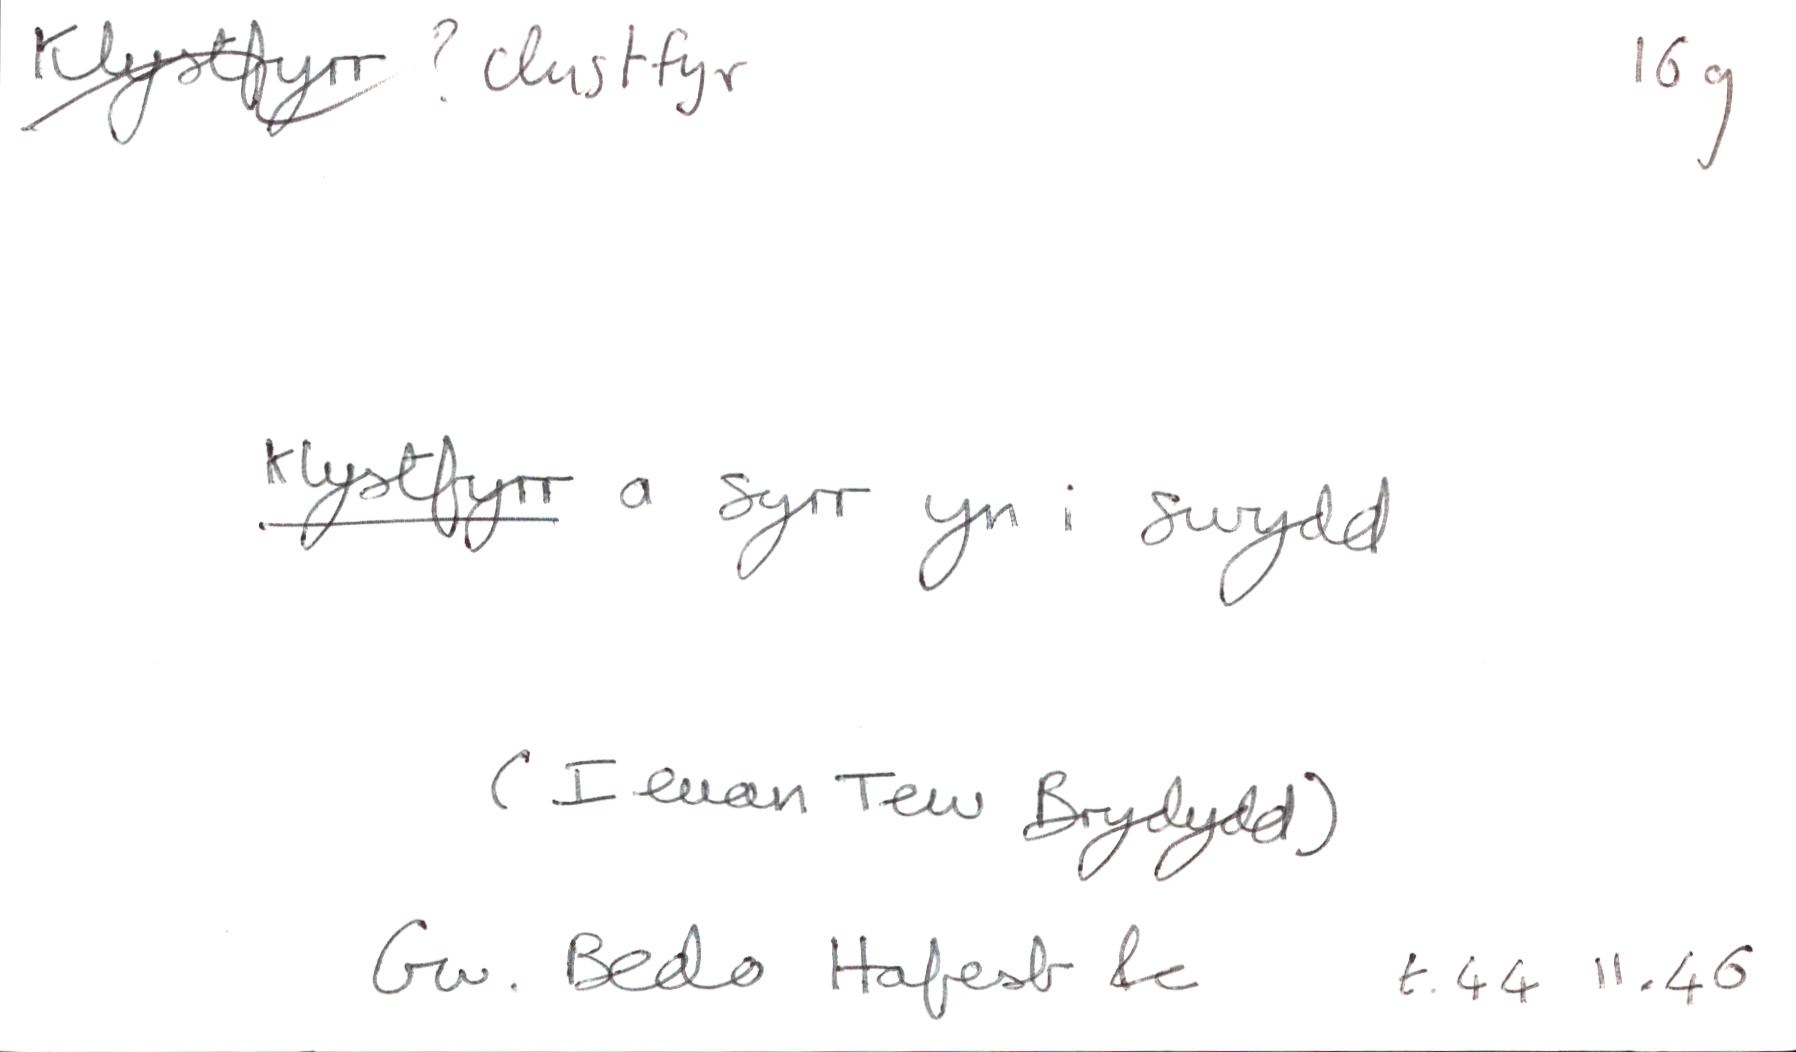 Klystfyrr ? clustfyr 16g
Klystfyrr a syrr yn i swydd
(Ieuan Tew Brydydd)
Gw. Bedo Hafesb &c t.44 ll.46